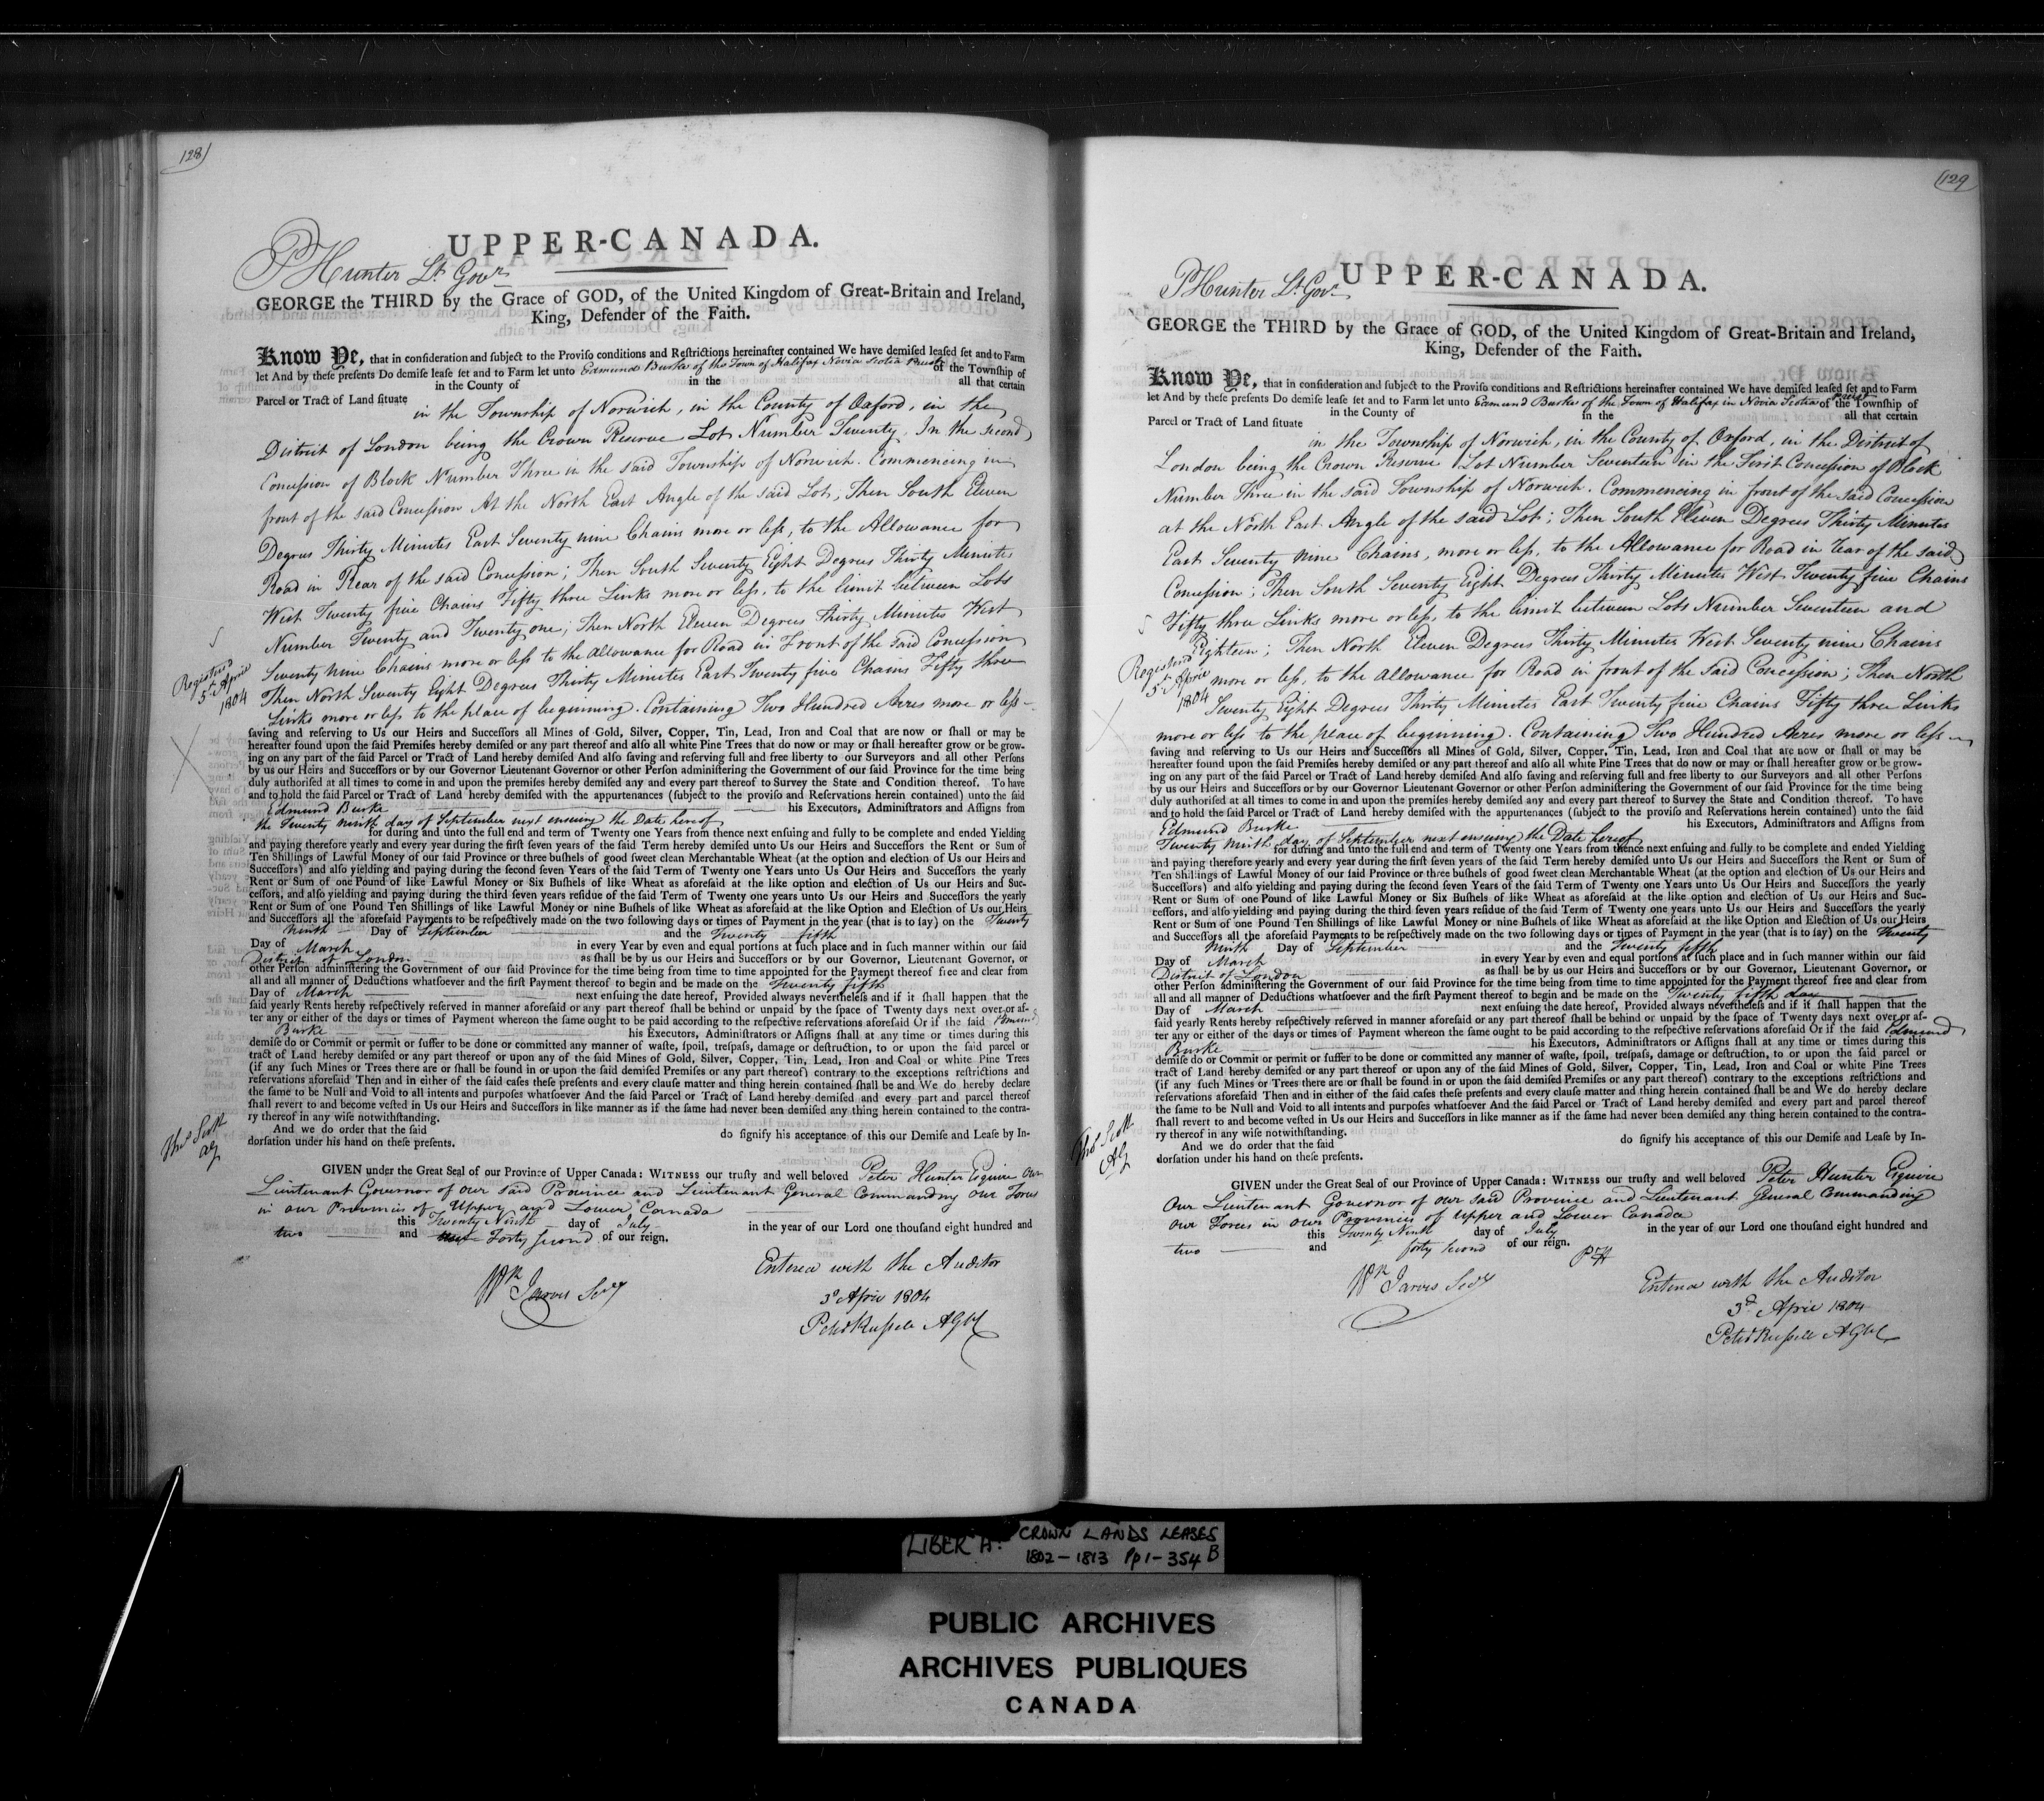 128)
UPPER-CANADA.
PHunter Lt Govr
GEORGE the THIRD by the Grace of GOD, of the United Kingdom of Great-Britain and Ireland,
King, Defender of the Faith.
Know Ye, that in conſideration and ſubject to the Proviſo conditions and Reſtrictions hereinafter contained We have demiſed leaſed ſet and to Farm
let And by theſe preſents Do demiſe leaſe ſet and to Farm let unto Edmund Burke of the Town of Halifax Novia Scotia Priest of the Township of
in the County of in the all that certain
Parcel or Tract of Land ſituate
in the Township of Norwich, in the County of Oxford, in the
District of London being the Crown Reserve Lot Number Twenty, In the second
Concession of Block Number Three in the said Township of Norwich. Commencing in
front of the said Concession At the North East Angle of the said Lot; Then South Eleven
Degrees Thirty Minutes East Seventy nine Chains more or less, to the Allowance for
Road in Rear of the said Concession; Then South Seventy Eight Degrees Thirty Minutes
West Twenty five Chains Fifty three Links more or less, to the limit between Lots
Number Twenty and Twenty one; Then North Eleven Degrees Thirty Minutes West
Seventy nine Chains more or less to the allowance for Road in Front of the said Concession
Then North Seventy Eight Degrees Thirty Minutes East Twenty five Chains Fifty three
Links more or less to the place of beginning. Containing Two Hundred Acres more or less
Registered
5th April
1804
ſaving and reſerving to Us our Heirs and Succeſſors all Mines of Gold, Silver, Copper, Tin, Lead, Iron and Coal that are now or ſhall or may be
hereafter found upon the ſaid Premiſes hereby demiſed or any part thereof and alſo all white Pine Trees that do now or may or ſhall hereafter grow or be grow-
ing on any part of the ſaid Parcel or Tract of Land hereby demiſed And alſo ſaving and reſerving full and free liberty to our Surveyors and all other Perſons
by us our Heirs and Succeſſors or by our Governor Lieutenant Governor or other Perſon adminiſtering the Government of our ſaid Province for the time being
duly authoriſed at all times to come in and upon the premiſes hereby demiſed any and every part thereof to Survey the State and Condition thereof. To have
and to hold the ſaid Parcel or Tract of Land hereby demiſed with the appurtenances (ſubject to the proviſo and Reſervations herein contained) unto the ſaid
Edmund Burke his Executors, Adminiſtrators and Aſſigns from
the Twenty ninth day of September next ensuing the Date hereof
for during and unto the full end and term of Twenty one Years from thence next enſuing and fully to be complete and ended Yielding
and paying therefore yearly and every year during the firſt ſeven years of the ſaid Term hereby demiſed unto Us our Heirs and Succeſſors the Rent or Sum of
Ten Shillings of Lawful Money of our ſaid Province or three buſhels of good ſweet clean Merchantable Wheat (at the option and election of Us our Heirs and
Succeſſors) and alſo yielding and paying during the ſecond ſeven Years of the ſaid Term of Twenty one Years unto Us Our Heirs and Succeſſors the yearly
Rent or Sum of one Pound of like Lawful Money or Six Buſhels of like Wheat as aforeſaid at the like option and election of Us our Heirs and Suc-
ceſſors, and alſo yielding and paying during the third ſeven years reſidue of the ſaid Term of Twenty one years unto Us our Heirs and Succeſſors the yearly
Rent or Sum of one Pound Ten Shillings of like Lawful Money or nine Buſhels of like Wheat as aforeſaid at the like Option and Election of Us our Heirs
and Succeſſors all the aforeſaid Payments to be reſpectively made on the two following days or times of Payment in the year (that is to ſay) on the Twenty
ninth Day of September and the Twenty fifth
Day of March in every Year by even and equal portions at ſuch place and in ſuch manner within our ſaid
District of London as ſhall be by us our Heirs and Succeſſors or by our Governor, Lieutenant Governor, or
other Perſon adminiſtering the Government of our ſaid Province for the time being from time to time appointed for the Payment thereof free and clear from
all and all manner of Deductions whatſoever and the firſt Payment thereof to begin and be made on the Twenty fifth
Day of March next enſuing the date hereof, Provided always nevertheleſs and if it ſhall happen that the
ſaid yearly Rents hereby reſpectively reſerved in manner aforeſaid or any part thereof ſhall be behind or unpaid by the ſpace of Twenty days next over or af-
ter any or either of the days or times of Payment whereon the ſame ought to be paid according to the reſpective reſervations aforeſaid Or if the ſaid Edmund
Burke his Executors, Adminiſtrators or Aſſigns ſhall at any time or times during this
demiſe do or Commit or permit or ſuffer to be done or committed any manner of waſte, ſpoil, treſpaſs, damage or deſtruction, to or upon the ſaid parcel or
tract of Land hereby demiſed or any part thereof or upon any of the ſaid Mines of Gold, Silver, Copper, Tin, Lead, Iron and Coal or white Pine Trees
(if any ſuch Mines or Trees there are or ſhall be found in or upon the ſaid demiſed Premiſes or any part thereof) contrary to the exceptions reſtrictions and
reſervations aforeſaid Then and in either of the ſaid caſes theſe preſents and every clauſe matter and thing herein contained ſhall be and We do hereby declare
the ſame to be Null and Void to all intents and purpoſes whatſoever And the ſaid Parcel or Tract of Land hereby demiſed and every part and parcel thereof
ſhall revert to and become veſted in Us our Heirs and Succeſſors in like manner as if the ſame had never been demiſed any thing herein contained to the contra-
ry thereof in any wiſe notwithſtanding.
And we do order that the ſaid do ſignify his acceptance of this our Demiſe and Leaſe by In-
dorſation under his hand on theſe preſents.
Thos Scott
AG
GIVEN under the Great Seal of our Province of Upper Canada: WITNESS our truſty and well beloved Peter Hunter Esquire Our
Lieutenant Governor of our said Province and Lieutenant General Commanding our Forces
in our Provinces of Upper and Lower Canada
this Twenty Ninth day of July in the year of our Lord one thouſand eight hundred and
two and Forty second of our reign.
Wm Jarvis Secy
Entered with the Auditor
3d April 1804
Peter Russell AGbl
(129
UPPER-CANADA.
PHunter Lt Govr
GEORGE the THIRD by the Grace of GOD, of the United Kingdom of Great-Britain and Ireland,
King, Defender of the Faith.
Know Ye, that in conſideration and ſubject to the Proviſo conditions and Reſtrictions hereinafter contained We have demiſed leaſed ſet and to Farm
let And by theſe preſents Do demiſe leaſe ſet and to Farm let unto Edmund Burke of the Town of Halifax in Novia Scotia Priest of the Township of
in the County of in the all that certain
Parcel or Tract of Land ſituate
in the Township of Norwich, in the County of Oxford, in the District of
London being the Crown Reserve Lot Number Seventeen in the First Concession of Block
Number Three in the said Township of Norwich. Commencing in front of the said Concession
at the North East Angle of the said Lot; Then South Eleven Degrees Thirty Minutes
East Seventy nine Chains, more or less, to the Allowance for Road in rear of the said
Concession; Then South Seventy Eight Degrees Thirty Minutes West Twenty five Chains
Fifty three Links more or less, to the limit between Lots Number Seventeen and
Eighteen; Then North Eleven Degrees Thirty Minutes West Seventy nine Chains
more or less, to the allowance for Road in front of the said Concession; Then North
Seventy Eight Degrees Thirty Minutes East Twenty five Chains Fifty three Links
more or less to the place of beginning. Containing Two Hundred Acres more or less
Registered
5th April
1804
ſaving and reſerving to Us our Heirs and Succeſſors all Mines of Gold, Silver, Copper, Tin, Lead, Iron and Coal that are now or ſhall or may be
hereafter found upon the ſaid Premiſes hereby demiſed or any part thereof and alſo all white Pine Trees that do now or may or ſhall hereafter grow or be grow-
ing on any part of the ſaid Parcel or Tract of Land hereby demiſed And alſo ſaving and reſerving full and free liberty to our Surveyors and all other Perſons
by us our Heirs and Succeſſors or by our Governor Lieutenant Governor or other Perſon adminiſtering the Government of our ſaid Province for the time being
duly authoriſed at all times to come in and upon the premiſes hereby demiſed any and every part thereof to Survey the State and Condition thereof. To have
and to hold the ſaid Parcel or Tract of Land hereby demiſed with the appurtenances (ſubject to the proviſo and Reſervations herein contained) unto the ſaid
Edmund Burke his Executors, Adminiſtrators and Aſſigns from
Twenty ninth day of September next ensuing the Date hereof
for during and unto the full end and term of Twenty one Years from thence next enſuing and fully to be complete and ended Yielding
and paying therefore yearly and every year during the firſt ſeven years of the ſaid Term hereby demiſed unto Us our Heirs and Succeſſors the Rent or Sum of
Ten Shillings of Lawful Money of our ſaid Province or three buſhels of good ſweet clean Merchantable Wheat (at the option and election of Us our Heirs and
Succeſſors) and alſo yielding and paying during the ſecond ſeven Years of the ſaid Term of Twenty one Years unto Us Our Heirs and Succeſſors the yearly
Rent or Sum of one Pound of like Lawful Money or Six Buſhels of like Wheat as aforeſaid at the like option and election of Us our Heirs and Suc-
ceſſors, and alſo yielding and paying during the third ſeven years reſidue of the ſaid Term of Twenty one years unto Us our Heirs and Succeſſors the yearly
Rent or Sum of one Pound Ten Shillings of like Lawful Money or nine Buſhels of like Wheat as aforeſaid at the like Option and Election of Us our Heirs
and Succeſſors all the aforeſaid Payments to be reſpectively made on the two following days or times of Payment in the year (that is to ſay) on the Twenty
Ninth Day of September and the Twenty fifth
Day of March in every Year by even and equal portions at ſuch place and in ſuch manner within our ſaid
District of London as ſhall be by us our Heirs and Succeſſors or by our Governor, Lieutenant Governor, or
other Perſon adminiſtering the Government of our ſaid Province for the time being from time to time appointed for the Payment thereof free and clear from
all and all manner of Deductions whatſoever and the firſt Payment thereof to begin and be made on the Twenty fifth day
Day of March next enſuing the date hereof, Provided always nevertheleſs and if it ſhall happen that the
ſaid yearly Rents hereby reſpectively reſerved in manner aforeſaid or any part thereof ſhall be behind or unpaid by the ſpace of Twenty days next over or af-
ter any or either of the days or times of Payment whereon the ſame ought to be paid according to the reſpective reſervations aforeſaid Or if the ſaid Edmund
Burke his Executors, Adminiſtrators or Aſſigns ſhall at any time or times during this
demiſe do or Commit or permit or ſuffer to be done or committed any manner of waſte, ſpoil, treſpaſs, damage or deſtruction, to or upon the ſaid parcel or
tract of Land hereby demiſed or any part thereof or upon any of the ſaid Mines of Gold, Silver, Copper, Tin, Lead, Iron and Coal or white Pine Trees
(if any ſuch Mines or Trees there are or ſhall be found in or upon the ſaid demiſed Premiſes or any part thereof) contrary to the exceptions reſtrictions and
reſervations aforeſaid Then and in either of the ſaid caſes theſe preſents and every clauſe matter and thing herein contained ſhall be and We do hereby declare
the ſame to be Null and Void to all intents and purpoſes whatſoever And the ſaid Parcel or Tract of Land hereby demiſed and every part and parcel thereof
ſhall revert to and become veſted in Us our Heirs and Succeſſors in like manner as if the ſame had never been demiſed any thing herein contained to the contra-
ry thereof in any wiſe notwithſtanding.
And we do order that the ſaid do ſignify his acceptance of this our Demiſe and Leaſe by In-
dorſation under his hand on theſe preſents.
Thos Scott
AG
GIVEN under the Great Seal of our Province of Upper Canada: WITNESS our truſty and well beloved Peter Hunter Esquire
Our Lieutenant Governor of our said Province and Lieutenant General Commanding
our Forces in our Provinces of Upper and Lower Canada
this Twenty Ninth day of July in the year of our Lord one thouſand eight hundred and
two and forty second of our reign.
PH
Wm Jarvis Secy
Entered with the Auditor
3d April 1804
Peter Russell AGbl
LIBER A: CROWN LANDS LEASES
1802-1813 Pp 1-354 B
PUBLIC ARCHIVES
ARCHIVES PUBLIQUES
CANADA